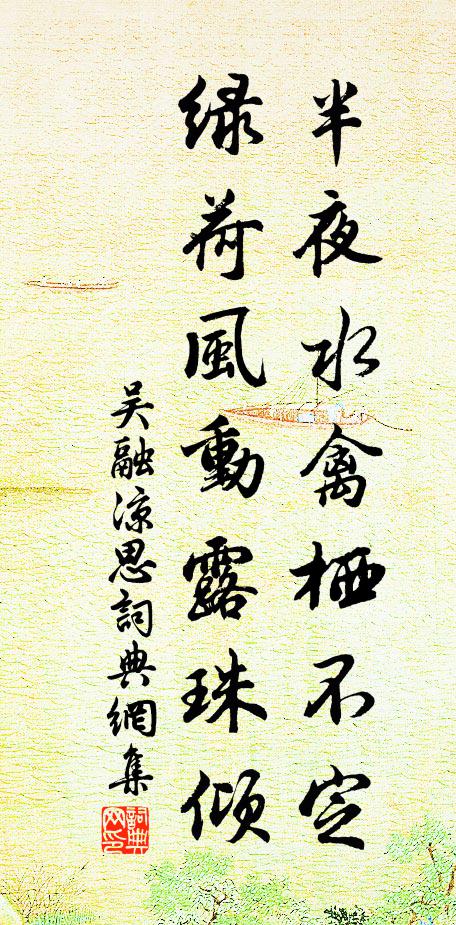 半夜水禽栖不定
綠荷風動露珠傾
吴融凉思詞典網集
詞典網印